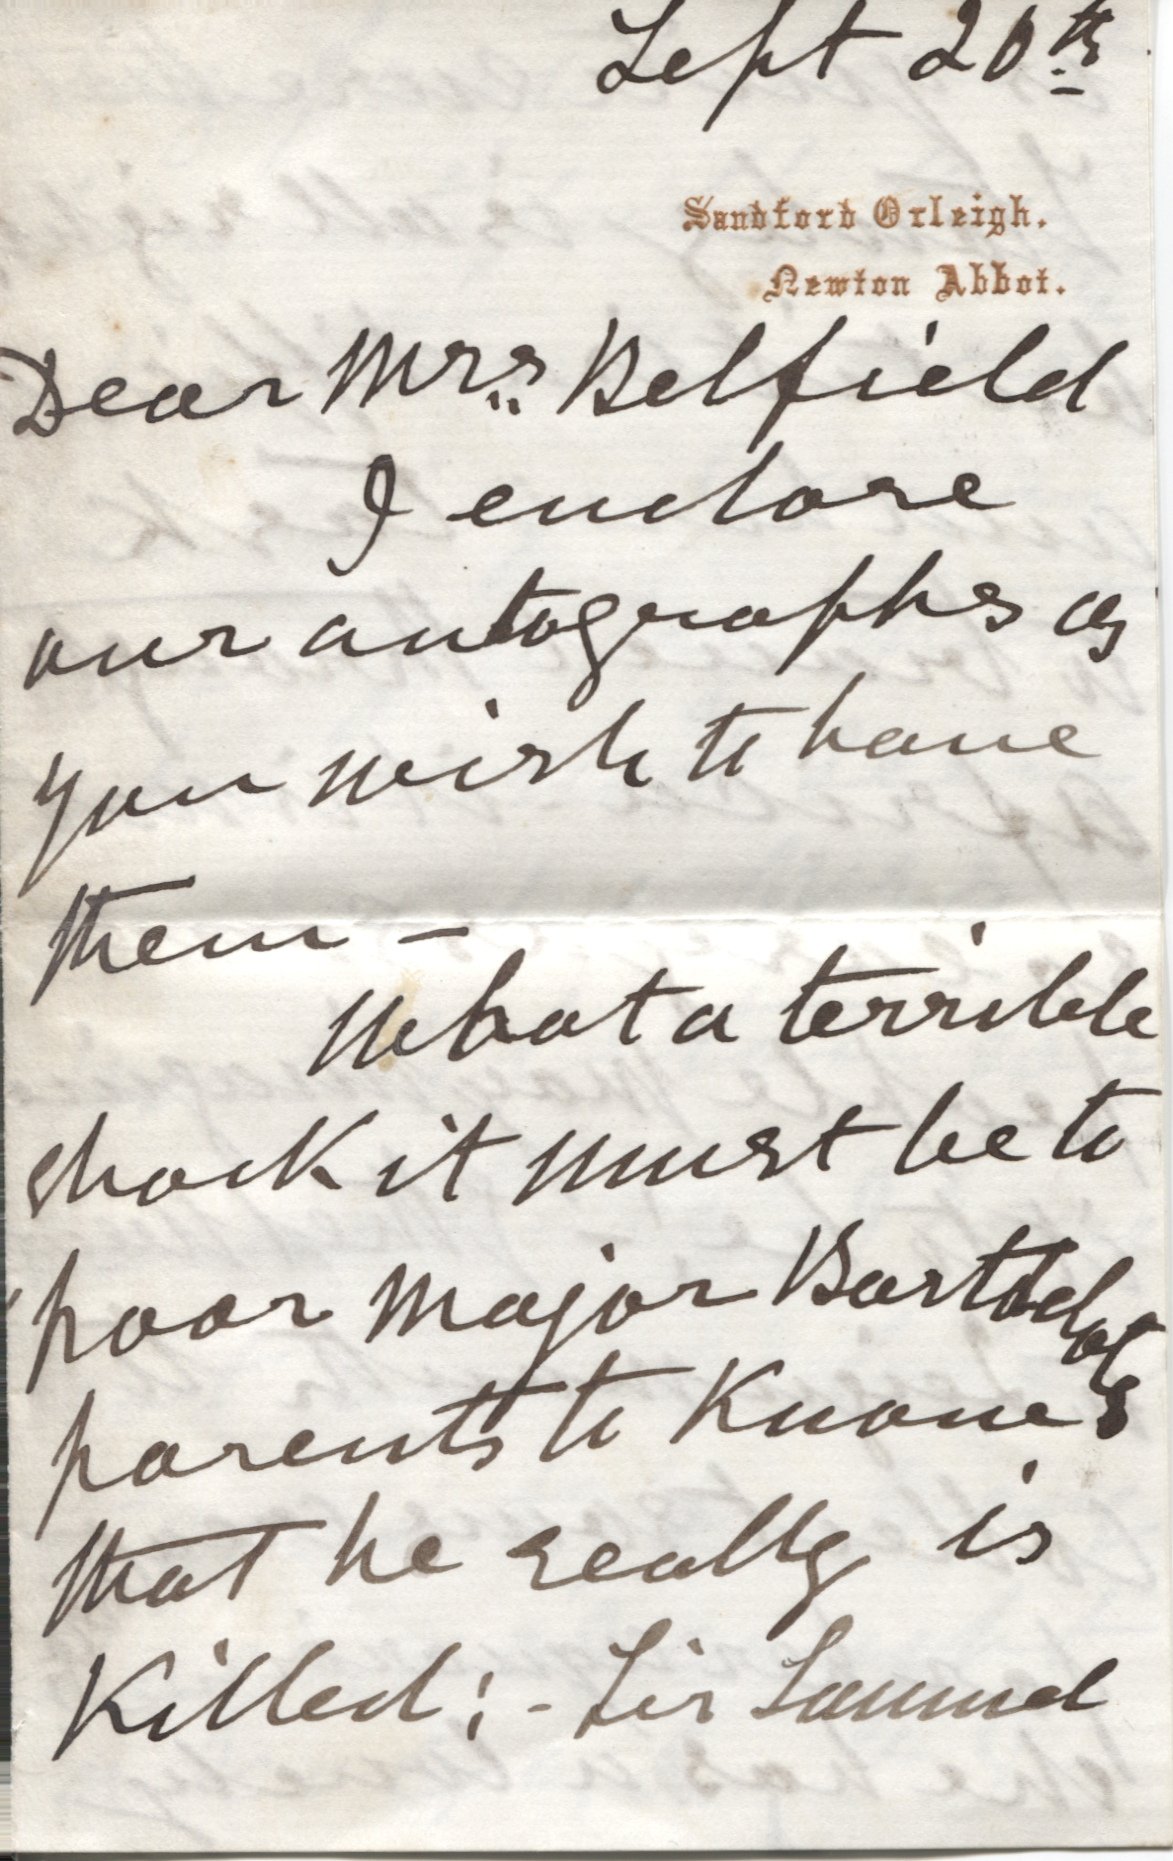 Sept 20th
Sandford Orleigh.
Newton Abbot.
Dear Mrs. Belfield
I enclose
our autographs as
you wish to have
them –
What a terrible
shock it must be to
poor Major Barttelot's
parents to know
that he really is
killed; - Sir Samuel